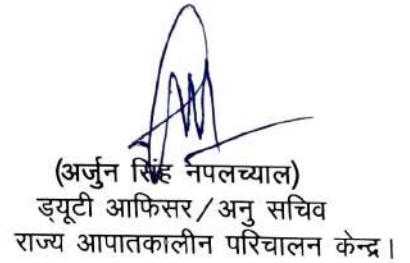 (अर्जुन सिंह नपलच्याल)
ड्यूटी आफिसर/अनु सचिव
राज्य आपातकालीन परिचालन केन्द्र।